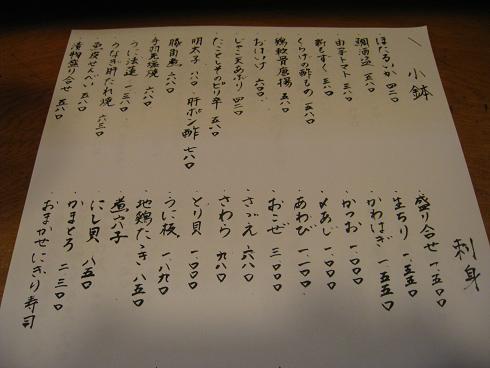 小鉢
・ほたるいか 四二〇
・鯛酒盗 五八〇
・由辛トマト 三八〇
・新もずく 三八〇
・くらげの酢もの 五八〇
・鶏軟骨唐揚 五八〇
・おけいげ 六〇〇
・じゃこ天あぶり 四二〇
・たこときゅうのピリ辛 五八〇
・明太子 八〇〇
・肝ポン酢 七八〇
・六八〇
・手羽先塩焼 六八〇
・うに法蓮 一二三〇
・うなぎ肝たれ焼 六三〇
・魚皮せんべい 五八〇
・漬物盛り合せ 五八〇
刺身
・盛り合せ 一、五〇〇
・生ちり 一、五五〇
・かわはぎ 一、五五〇
・かつお 一、〇〇〇
・〆あじ 一、〇〇〇
・あわび 一、〇〇〇
・おこぜ 三、〇〇〇
・さざえ 六八〇
・さわら 九八〇
・とり貝 一、〇〇〇
・うに板 一、八九〇
・地鶏たゝき 八五〇
・煮穴子
・にし貝 八五〇
・かまとろ 二三〇〇
・おまかせにぎり寿司